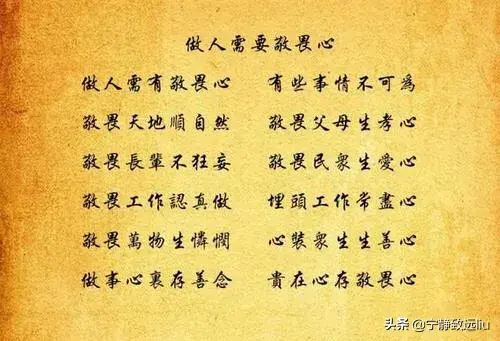 做人需要敬畏心
做人需有敬畏心 有些事情不可為
敬畏天地順自然 敬畏父母生孝心
敬畏長輩不狂妄 敬畏民衆生愛心
敬畏工作認真做 埋頭工作常盡心
敬畏萬物生憐憫 心裝衆生生善心
做事心裏存善念 貴在心存敬畏心
头条 @宁静致远liu